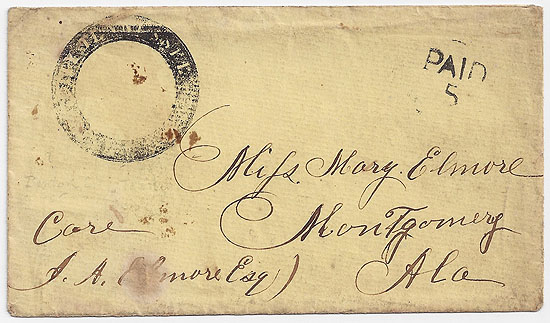 PAID
5
Miss Mary. Elmore
Montgomery
Ala
Care
J. A. Elmore Esq)